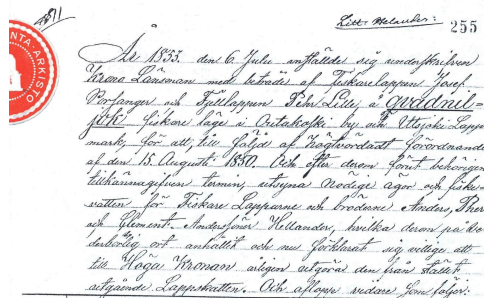 Litt. Helander: 255
NTA-ARKISTO
År 1833. den 6. Julii infställde sig underskrifven
Krono Länsman med beträde af Fiskarelappen Josef
Porsanger och Fjellappen Pehr Lille, å
jok fiskare läge i by och Utsjoki Lapp-
mark, för att, till följd af Högvördadt förordnande
af den 15. Augusti 1830. Och efter derom förut behörigen
tillkännagifven termin, utsyna nödige ägor och fiske-
vatten för Fiskare Lapparne och bröderne Anders, Pher
och Clement Anderssöner Hellander, hvilka derom på ve-
derbörlig ort anhållit och nu förklarat sig vettige att
till Höga Kronan årligen utgöra den från stället
utgående Lappskatten. Och aflopp vidare som följer: